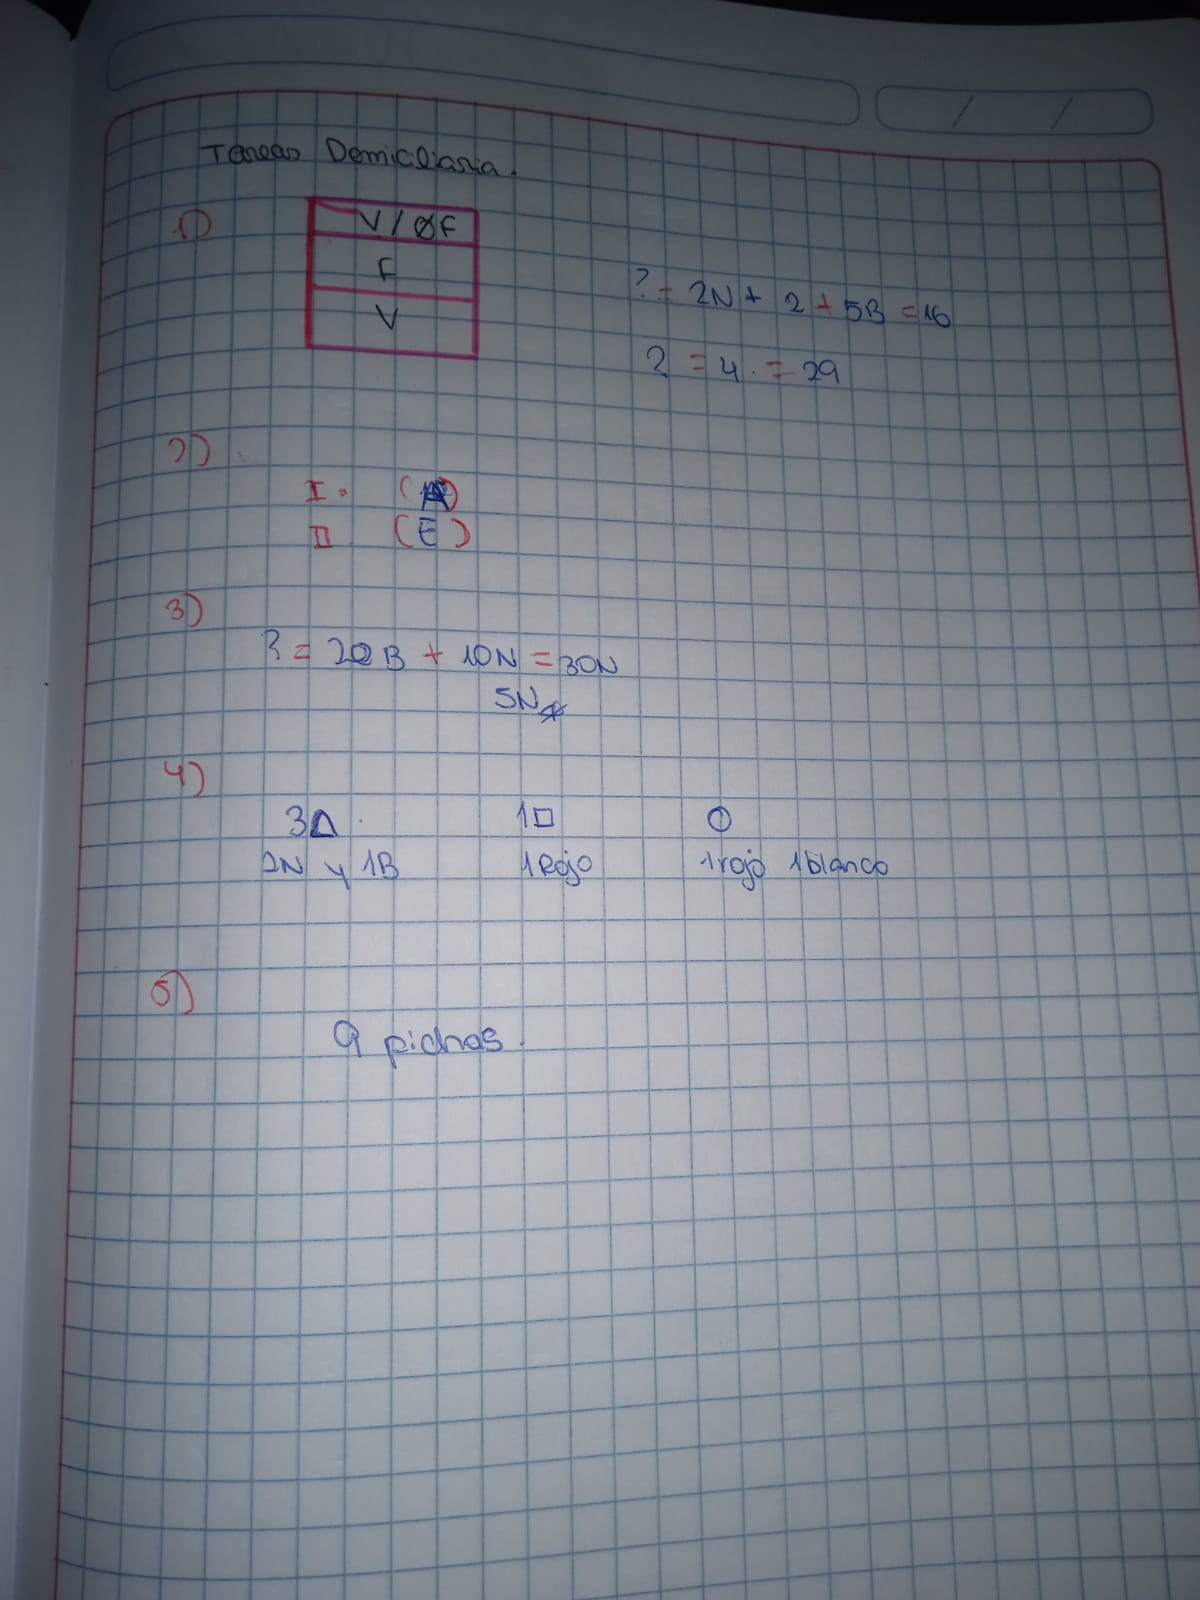 Tareas Domiciliaria.
1)
V/ØF
F
V
? = 2N + 2 + 5B = 16
2 = 4. = 29
2)
I. (A)
II (E)
3)
? = 20B + 10N = 30N
5N
4)
3△ 1□ O
2N y 1B 1Rojo 1rojo 1blanco
5)
9 fichas.